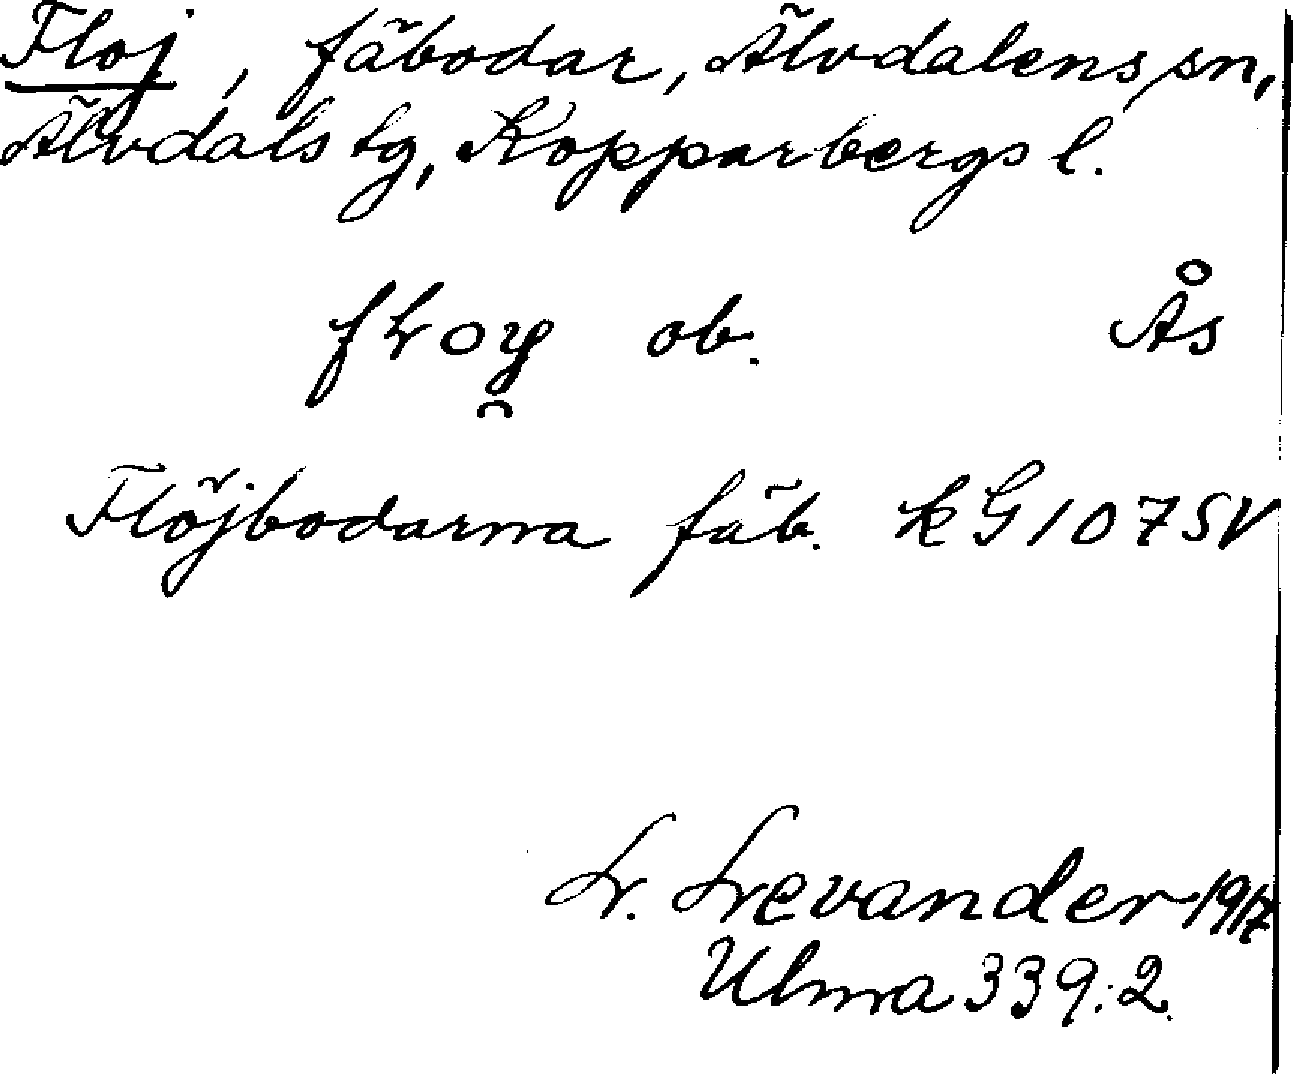 Floj, fäbodar, Älvdalens sn,
Älvdals tg, Kopparbergs l.
ob. Ås
Flöjbodarna fäb. kG107SV
L. Levander 1917
Ulma 339:2.